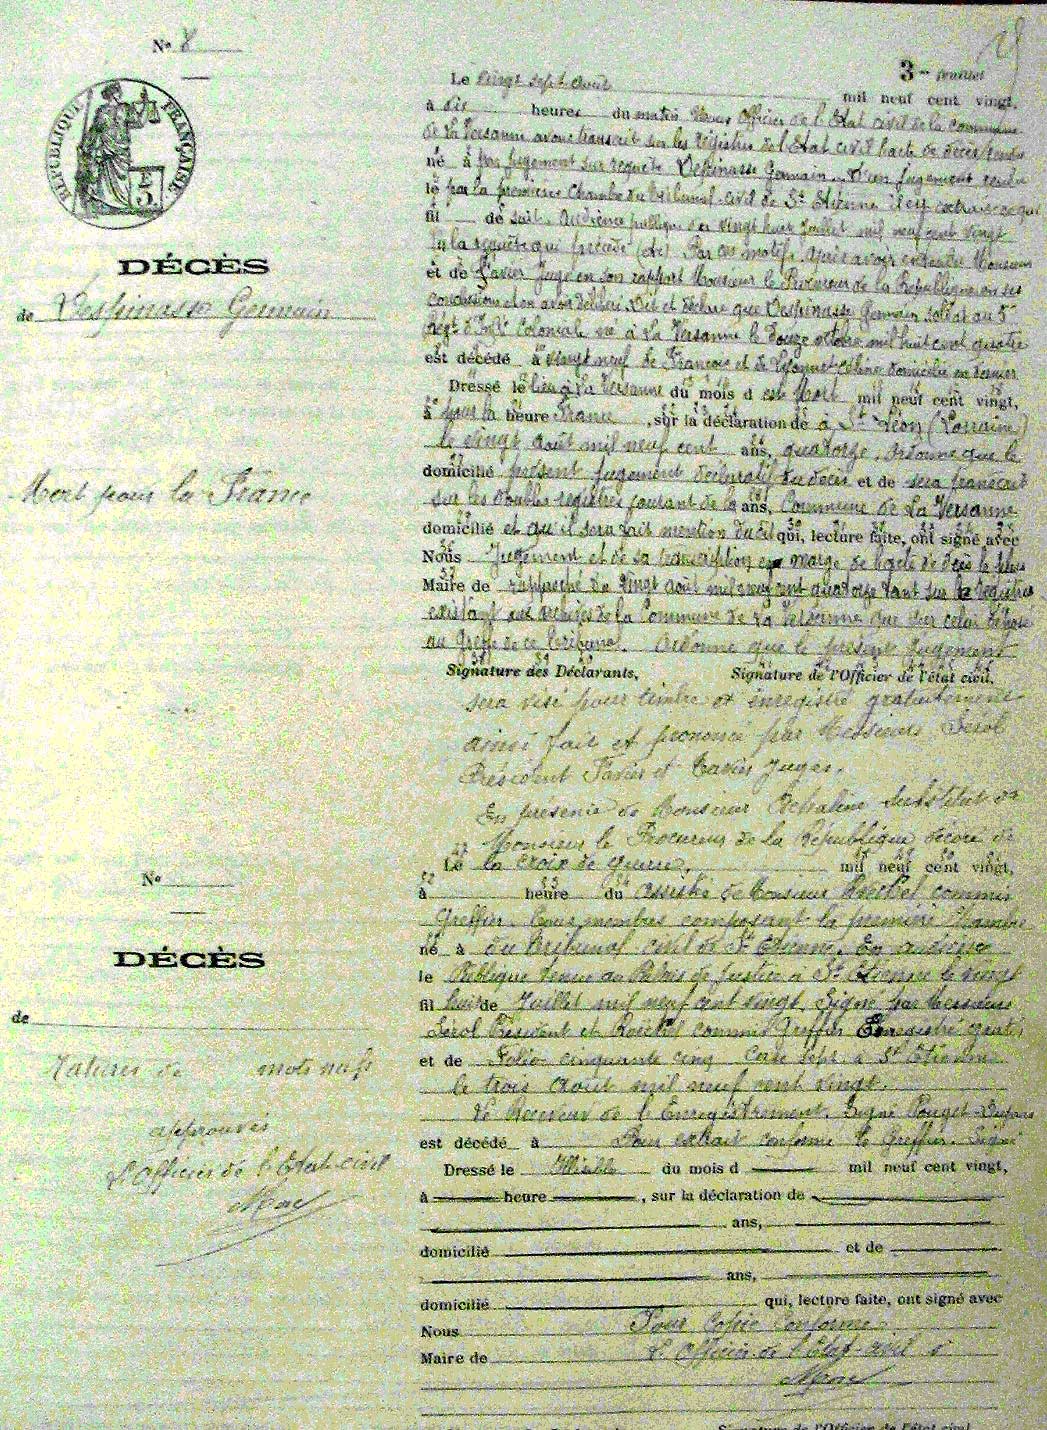 N° 8
RÉPUBLIQUE FRANÇAISE
DÉCÈS
de Vespinasse Germain
Mort pour la France
3me feuillet
Le vingt sept août mil neuf cent vingt,
à dix heures du matin Nous Officier de l'Etat civil de la commune
de La Versanne avons transcrit sur les registres de l'Etat civil l'acte de décès
né à par jugement sur requête Vespinasse Germain. D'un jugement rendu
le par la première Chambre du Tribunal civil de St Etienne il est extrait ce qui
fil de suit. Audience publique du vingt huit Juillet mil neuf cent vingt
Vu la requête qui précède Par ces motifs, après avoir entendu Monsieur
et de Favier Juge en son rapport Monsieur le Procureur de la République en ses
conclusions et en avoir délibéré. Dit et déclare que Vespinasse Germain soldat au 5e
Régt d'Infie Colonial né à La Versanne le douze octobre mil huit cent quatre
est décédé à vingt neuf de François et de domicilié en dernier
Dressé le lieu à La Versanne du mois d est Mort mil neuf cent vingt,
à pour la heure France, sur la déclaration de à St Léon (Lorraine)
le vingt août mil neuf cent ans, quatorze. Ordonne que le
domicilié présent jugement déclaratif du décès et de sera transcrit
sur les doubles registres courant de la ans, Commune de La Versanne
domicilié et qu'il sera fait mention dudit qui, lecture faite, ont signé avec
Nous Jugement et de sa transcription en marge de l'acte de décès le plus
Maire de rapproché du vingt août mil neuf cent quatorze tant sur les registres
existant aux archives de la Commune de La Versanne que sur celui déposé
au Greffe de ce Tribunal. Ordonne que le présent jugement
Signature des Déclarants, Signature de l'Officier de l'état civil,
sera visé pour timbre et enregistré gratuitement
ainsi fait et prononcé par Messieurs Serol
Président Favier et Juges.
En présence de Monsieur Substitut de
Monsieur le Procureur de la République décoré de
N°
DÉCÈS
de
Ratures de mots nuls
approuvés
L'Officier de l'Etat civil
Le la croix de guerre, mil neuf cent vingt,
à heure du assisté de Monsieur commis
Greffier. Tous membres composant la première Chambre
né à du Tribunal civil de St Etienne. En audience
le Publique tenue au Palais de Justice à St Etienne le vingt
fil huit de Juillet mil neuf cent vingt. Signé par Messieurs
Serol Président et commis Greffier Enregistré gratis
et de Folio cinquante cinq Case sept à St Etienne
le trois août mil neuf cent vingt.
Le Receveur de l'Enregistrement. Signé Pouget
est décédé à Pour extrait conforme le Greffier. Signé
Dressé le Illisible du mois d mil neuf cent vingt,
à heure, sur la déclaration de
ans,
domicilié et de
ans,
domicilié qui, lecture faite, ont signé avec
Nous Pour Copie Conforme
Maire de L'Officier de l'Etat-civil
Signature de l'Officier de l'état civil